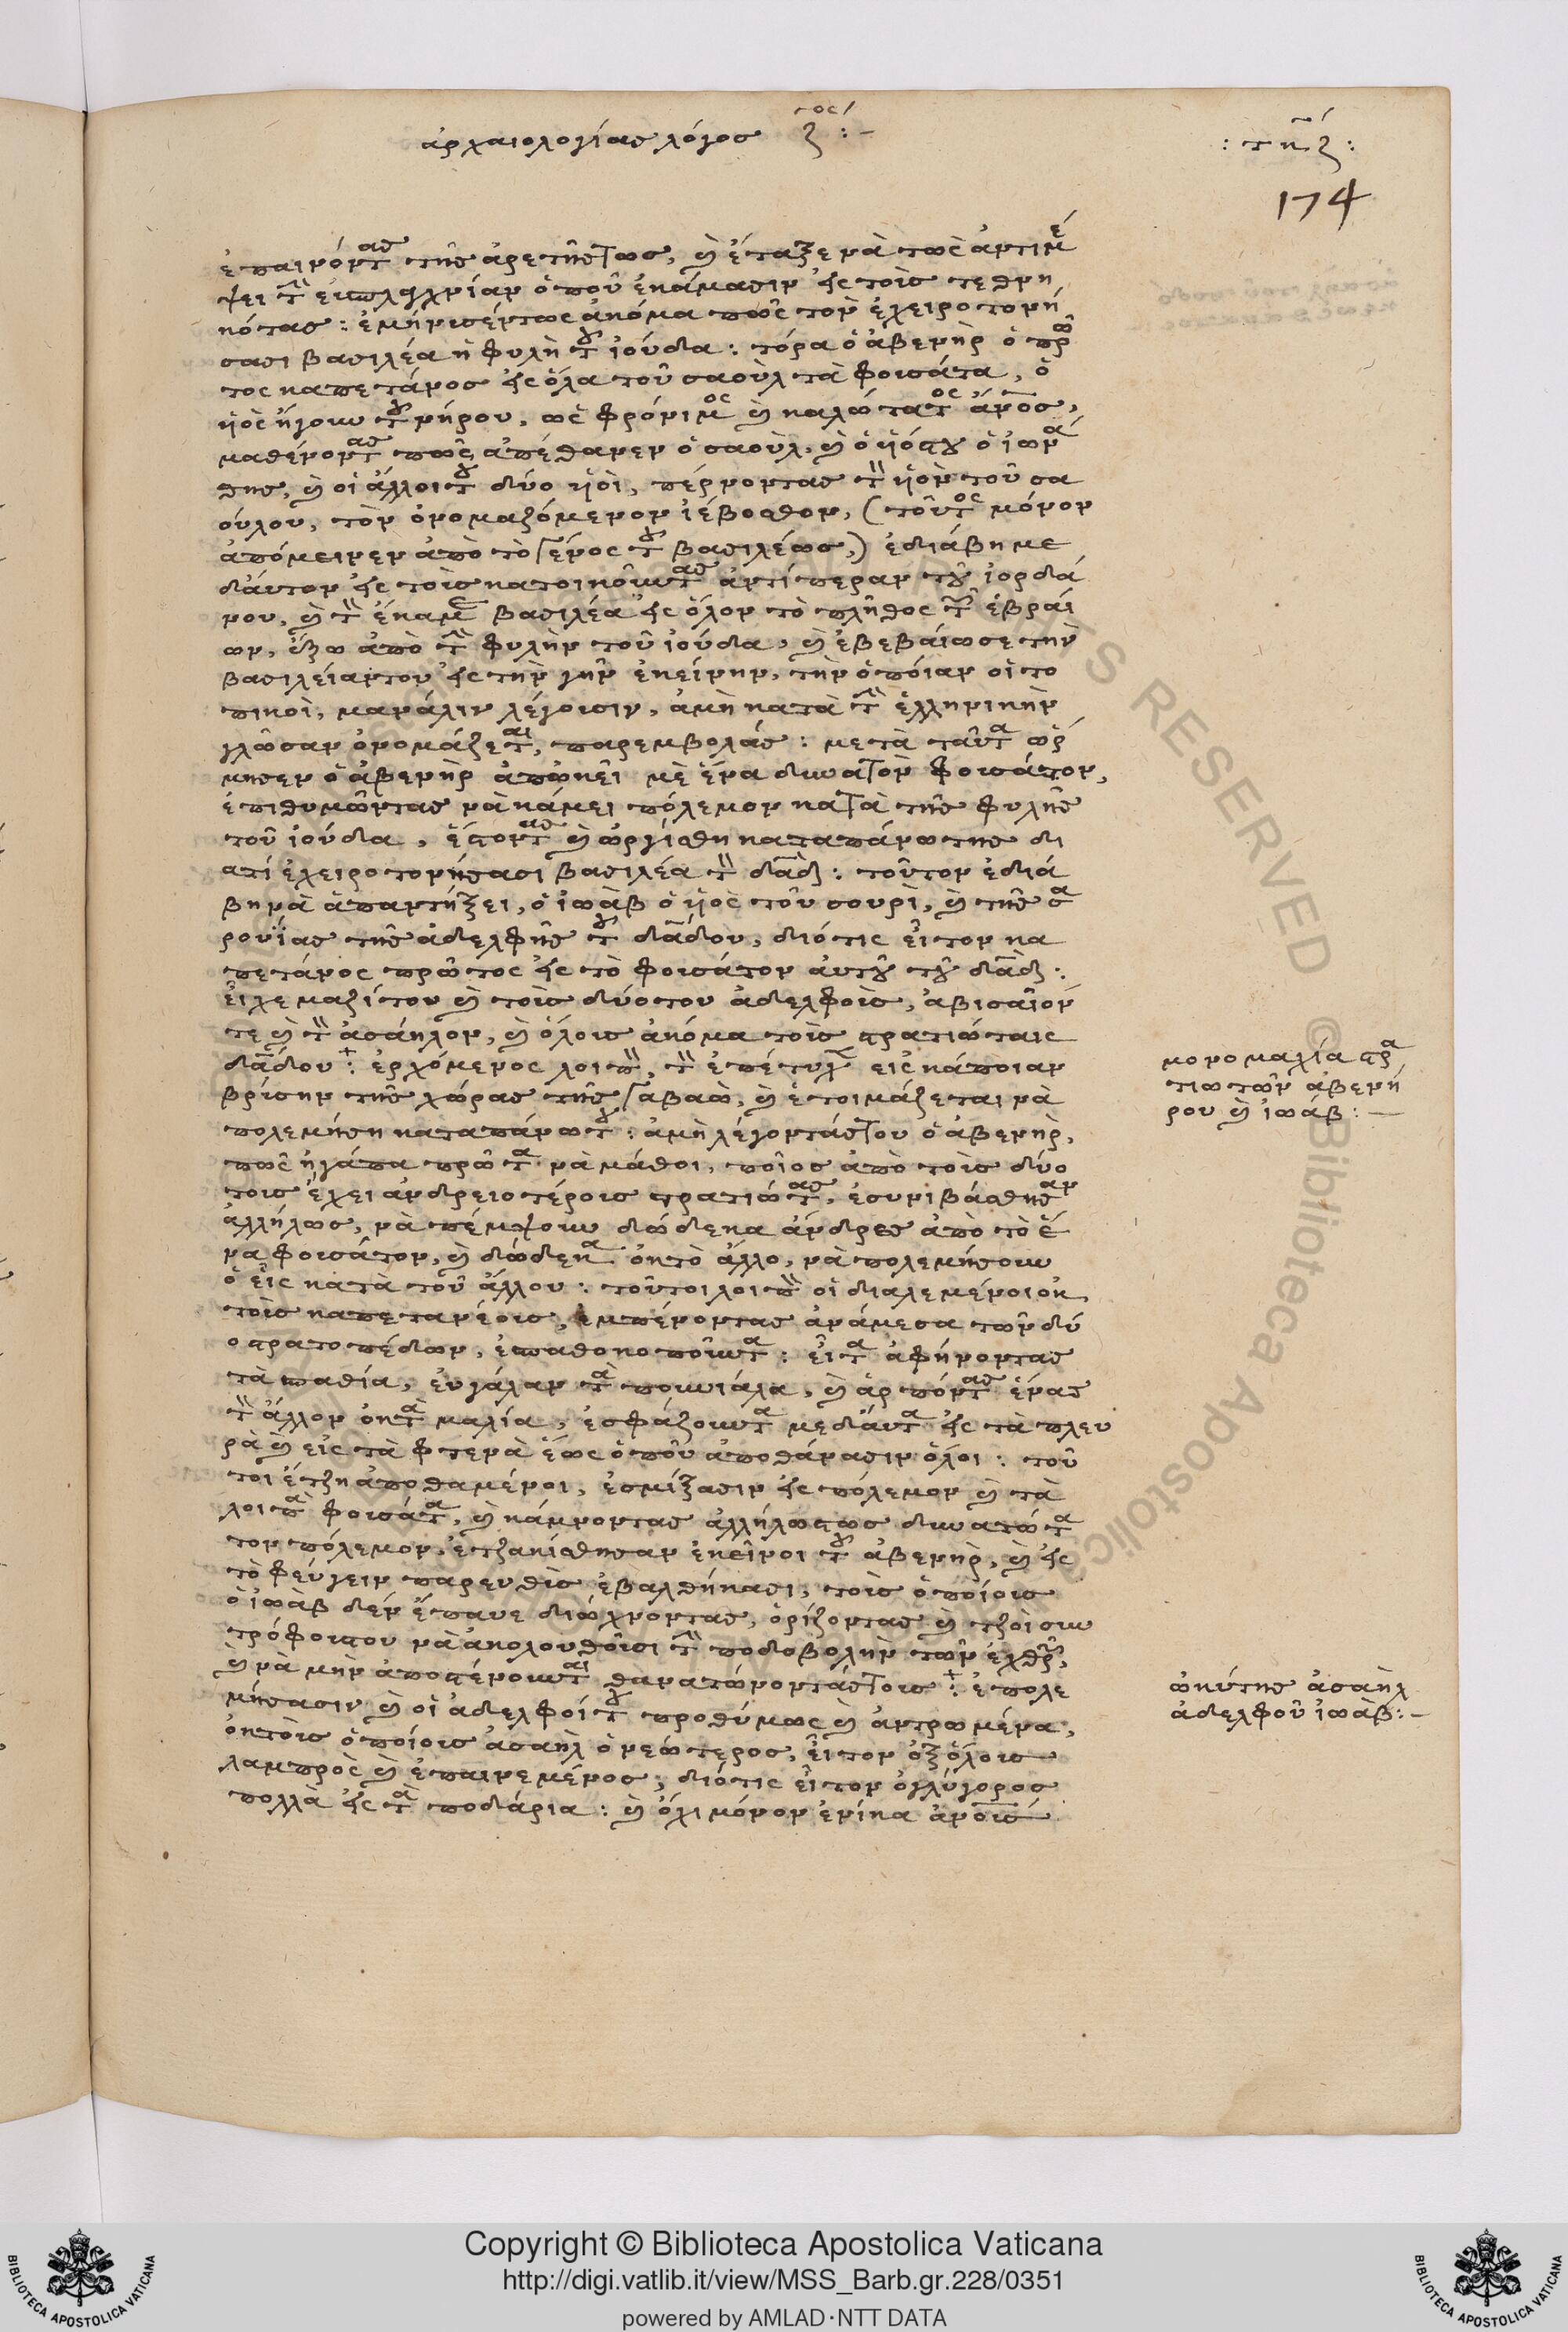 ἀρχαιολογίας λόγος ζ τος :-
: τῆ ζ :
174
ἐπαινόντας τῆς ἀρετῆς τως, καὶ ἔταξε νὰ τοὺς ἀντιμέ
ψει τὴν εὐσπλαχνίαν ὁποῦ ἐκάμασιν εἰς τοὺς τεθνη
κότας : ἐμήνυσέντως ἀκόμα πῶς τὸν ἐχειροτονή
σασι βασιλέα ἡ φυλὴ τοῦ ἰούδα : τόρα ὁ ἀβεννὴρ ὁ πρῶ
τος καπετάνος εἰς ὅλα τοῦ σαοὺλ τὰ φουσάτα, ὁ
ὑιὸς ἤγουν τοῦ νήρου, ὡς φρόνιμος καὶ καλώτατος ἄνος,
μαθένοντας πῶς ἀπέθανεν ὁ σαοὺλ, καὶ ὁ ὑιόςτου ὁ ἰωνά
θης, καὶ οἱ ἄλλοιτου δύο ὑιοὶ, πέρνοντας τὸν ὑιὸν τοῦ σα
ούλου, τὸν ὀνομαζόμενον ἰέβοσθον, (τοῦτος μόνον
ἀπόμεινεν ἀπὸ τὸ γένος τοῦ βασιλέως,) ἐδιάβη με
δἄυτον εἰς τοὺς κατοικοῦντας ἀντίπεραν τοῦ ἰορδά
νου, καὶ τὸν ἔκαμε βασιλέα εἰς ὅλον τὸ πλῆθος τῶν ἑβραί
ων, ἔξω ἀπὸ τὴν φυλὴν τοῦ ἰούδα, καὶ ἐβεβαίωσε τὴν
βασιλείαντου εἰς τὴν γῆν ἐκείνην, τὴν ὁποίαν οἱ το
πικοὶ, μανάλιν λέγουσιν, ἀμὴ κατὰ τὴν ἑλληνικὴν
γλῶσαν ὀνομάζεται, παρεμβολάς : μετὰ ταῦτα ὥρ
μησεν ὁ ἀβεννὴρ ἀπῶκεῖ μὲ ἕνα δυνατὸν φουσάτον,
ἐπιθυμῶντας νὰ κάμει πόλεμον κατὰ τῆς φυλῆς
τοῦ ἰούδα, ἔστοντας καὶ ὠργίσθη καταπάνω της δι
ατί ἐχειροτονήσασι βασιλέα τὸν δαδ : τοῦτον ἐδιά
βη νὰ ἀπαντήξει, ὁ ἰωὰβ ὁ ὑιὸς τοῦ σουρὶ, καὶ τῆς σα
ρουΐας τῆς ἀδελφῆς τοῦ δάδου, διότις εἶτον κα
πετάνος πρῶτος εἰς τὸ φουσάτον ἀυτοῦ τοῦ δαδ :
εἶχε μαζίτου καὶ τοὺς δύοτου ἀδελφοὺς, ἀβισαῖον
τε καὶ τὸν ἀσάηλον, καὶ ὅλους ἀκόμα τοὺς στρατιώταις
δάδου : ἐρχόμενος λοιπὸν, τὸν ἐπέτυχε εἰς κάποιαν
βρίσην τῆς χώρας τῆς γαβαὼ, καὶ ἑτοιμάζεται νὰ
πολεμήση καταπάνωτου : ἀμὴ λέγοντάςτου ὁ ἀβεννὴρ,
πῶς ἠγάπα πρῶτα νὰ μάθοι, ποῖος ἀπὸ τοὺς δύο
τους ἔχει ἀνδρειοτέρους στρατιώτας, ἐσυνιβάσθησαν
ἀλλήλως, νὰ πέμψουν δώδεκα ἄνδρες ἀπὸ τὸ ἕ
να φουσάτον, καὶ δώδεκα ἐκ τὸ ἄλλο, νὰ πολεμήσουν
ὁ εἷς κατὰ τοῦ ἄλλου : τοῦτοι λοιπὸν οἱ διαλεμένοι ἐκ
τοὺς καπετανέους, ἐμπένοντας ἀνάμεσα τῶν δύ
ο στρατοπέδων, ἐσπαθοκοποῦντα : εἶτα ἀφήνοντας
τὰ σπαθία, ἐυγάλαν τὰ πουνιάλα, καὶ ἁρπόντας ἕνας
τὸν ἄλλον ἐκ τὰ μαλία, ἐσφάζουντα μεδἄυτα εἰς τὰ πλευ
ρὰ καὶ εἰς τὰ φτερὰ ἕως ὁποῦ ἀποθάνασιν ὅλοι : τοῦ
τοι ἔτζη ἀποθαμένοι, ἐσμίξασιν εἰς πόλεμον καὶ τὰ
λοιπὰ φουσάτα, καὶ κάμνοντας ἀλλήλωςτως δυνατώτα
τον πόλεμον, ἐτζακίσθησαν ἐκεῖνοι τοῦ ἀβεννὴρ, καὶ εἰς
τὸ φεύγειν παρευθὺς ἐβαλθήκασι, τοὺς ὁποίους
ὁ ἰωὰβ δὲν ἔπαυε διώχνοντας, ὁρίζοντας καὶ τζοὶ συν
τρόφουςτου νὰ ἀκολουθοῦσι τὴν ποδοβολὴν τῶν ἐχθρῶν,
καὶ νὰ μὴν ἀποστένουνται θανατώνοντάςτους : ἐπολε
μήσασιν καὶ οἱ ἀδελφοίτου προθύμως καὶ ἀντρωμένα,
ἐκ τοὺς ὁποίους ἀσαὴλ ὁ νεώτερος, εἶτον ἐξ ὅλους
λαμπρὸς καὶ ἐπαινεμένος, διότις εἶτον ὀγλύγορος
πολλὰ εἰς τὰ ποδάρια : καὶ ὄχι μόνον ἐνίκα ἀνους
μονομαχία στρα
τιωτῶν ἀβεννή
ρου καὶ ἰωάβ : —
ὠκύτης ἀσαὴλ
ἀδελφοῦ ἰωὰβ : -
RIGHTS RESERVED © Biblioteca Apostolica
Copyright © Biblioteca Apostolica Vaticana
http://digi.vatlib.it/view/MSS_Barb.gr.228/0351
powered by AMLAD·NTT DATA
BIBLIOTECA APOSTOLICA VATICANA
BIBLIOTECA APOSTOLICA VATICANA